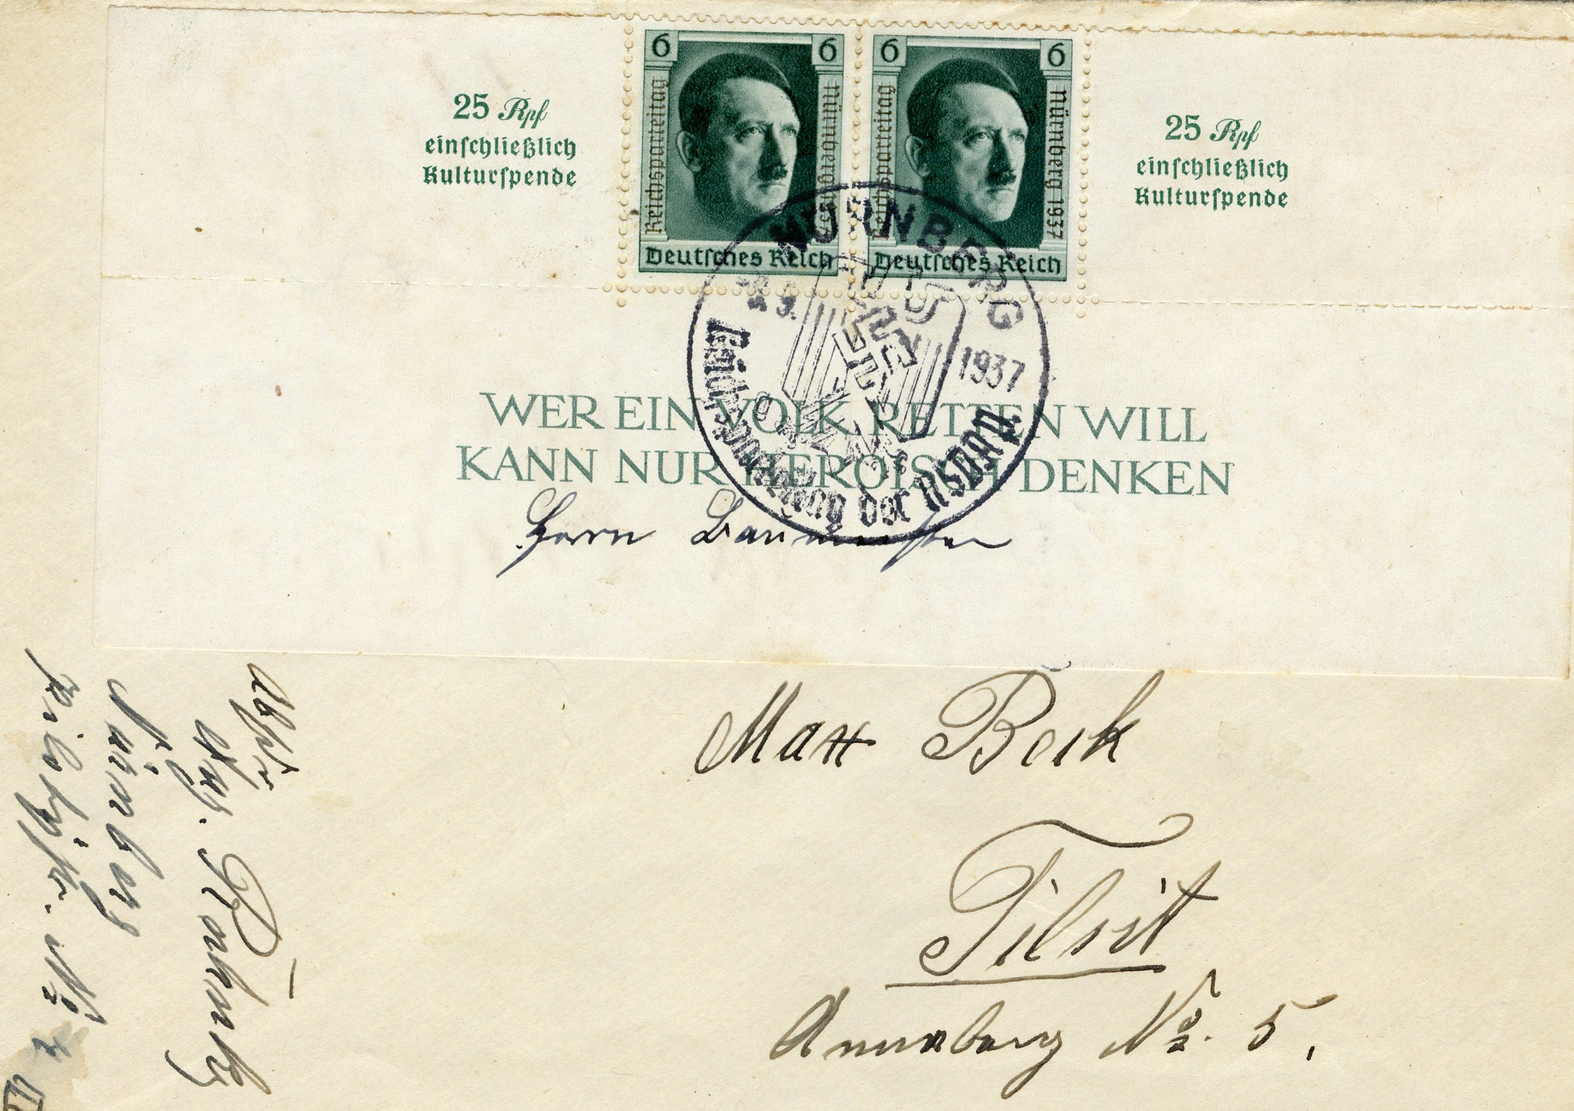 6 6
Reichsparteitag Nürnberg 1937
Deutsches Reich
6 6
Reichsparteitag Nürnberg 1937
Deutsches Reich
25 Rpf
einschließlich
Kulturspende
25 Rpf
einschließlich
Kulturspende
NÜRNBERG
9. 1937
Reichsparteitag der NSDAP.
WER EIN VOLK RETTEN WILL
KANN NUR HEROISCH DENKEN
Herrn Baumeister
Max Beik
Tilsit
Annaberg No. 5.
Nürnberg
II